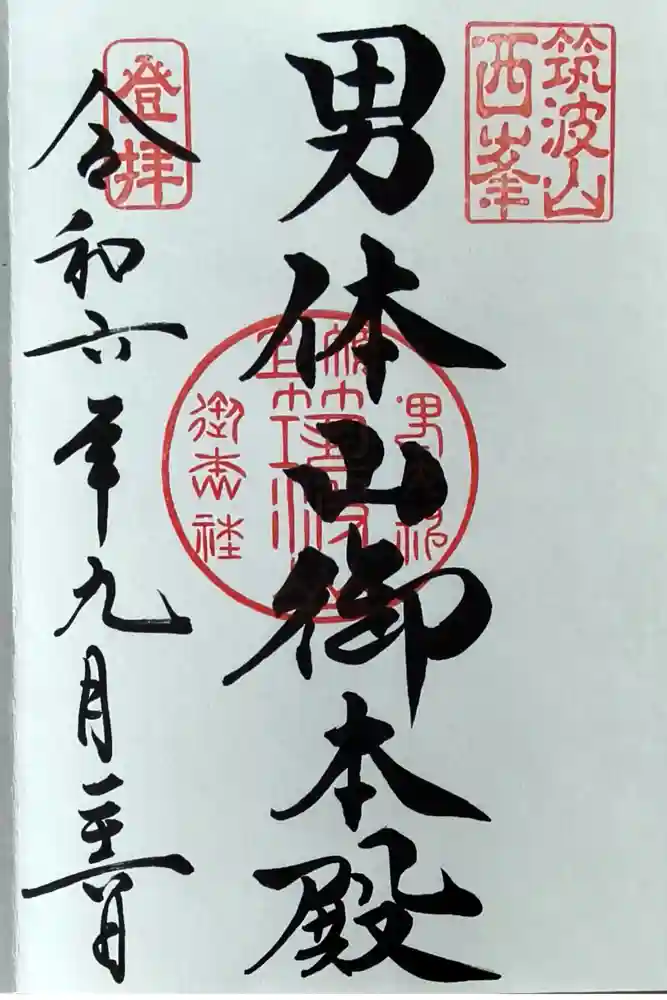 筑波山
西峯
男体山御本殿
御本社
登拝
令和六年九月二十六日